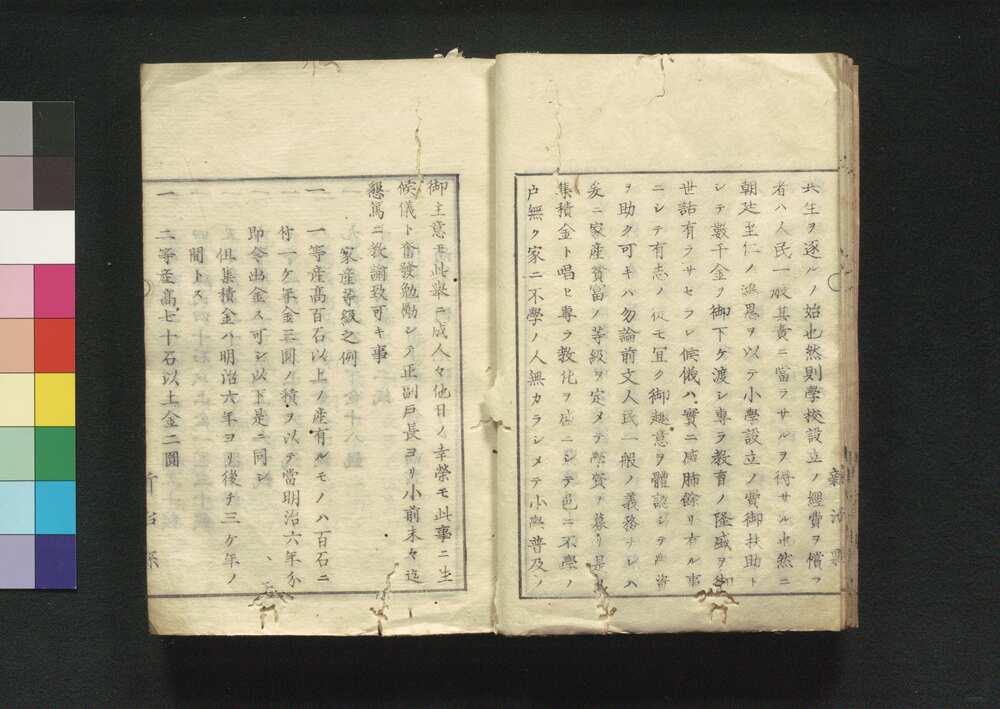 共生ヲ逐ルノ始也然則學校設立ノ經費ヲ償フ
者ハ人民一般其責ニ當ラサルヲ得サル也然ニ
朝廷至仁ノ鴻恩ヲ以テ小學設立ノ費御扶助ト
シテ數千金ヲ御下ケ渡シ専ラ教育ノ隆盛ヲ御
世話有ラサセラレ候儀ハ實ニ感肺餘リ有ル事
ニシテ有志ノ徒モ宜ク御趣意ヲ體認シテ産資
ヲ助ク可キハ勿論前文人民一般ノ義務ナレハ
爰ニ家産貧富ノ等級ヲ定メテ學費ヲ募リ是ヲ
集積金ト唱ヒ専ラ教化ヲ盛ニシテ邑ニ不學ノ
户無ク家ニ不學ノ人無カラシメテ小學普及ノ
御主意モ此擧ニ成人々他日ノ幸榮モ此事ニ生
候儀ト奮發勉勵シテ正副戸長ヨリ小前末々迄
懇篤ニ教諭致可キ事
家産等級之例
一 一等産高百石以上ノ産有ルモノハ百石ニ
付一ケ年金三圓ノ積ヲ以テ當明治六年分
即今出金ス可シ以下是ニ同シ
但集積金ハ明治六年ヨリ後チ三ケ年ノ
間トス
一 二等産高七十石以上金二圓
新治縣